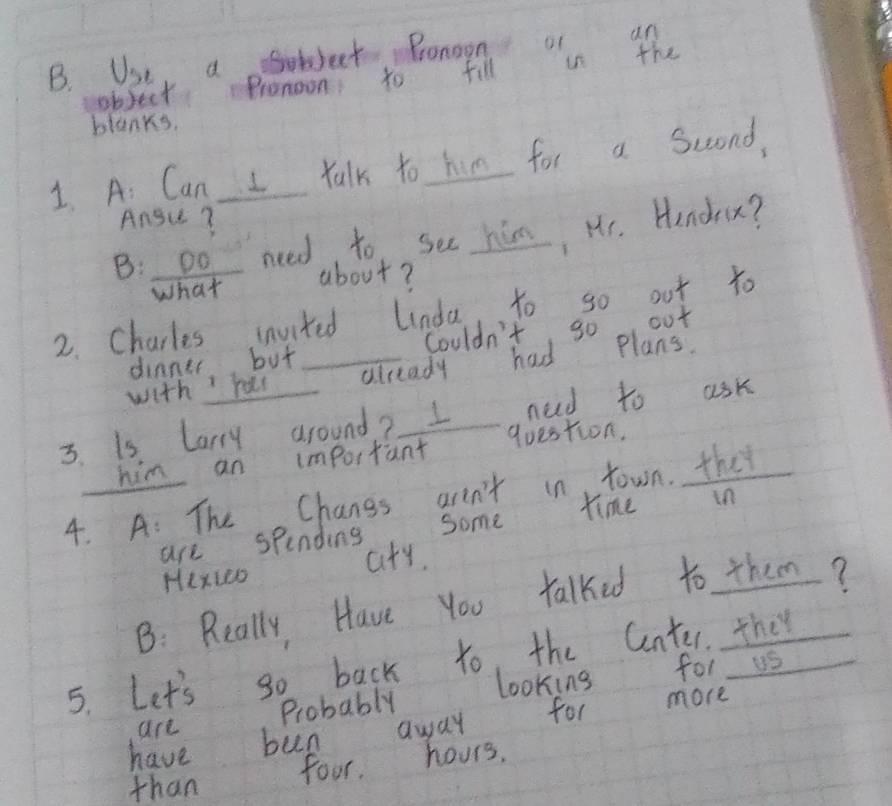 B. Use a Subject Pronoon or an
object Pronoon to fill in the
blanks.
1. A: Can I talk to him for a Second,
Angie?
B: DO need to see him, Mr. Hendrix?
what about?
2. Charles invited Linda to go out to
dinner, but ____ Couldn't go out
with her already had Plans.
3. Is Larry around? I need to ask
him an important question.
4. A: The Changs aren't in town. they
are spending some time in
Mexico City.
B: Really, Have you talked to them?
5. Let's go back to the Center. they
are Probably looking for us
have been away for more
than four hours.